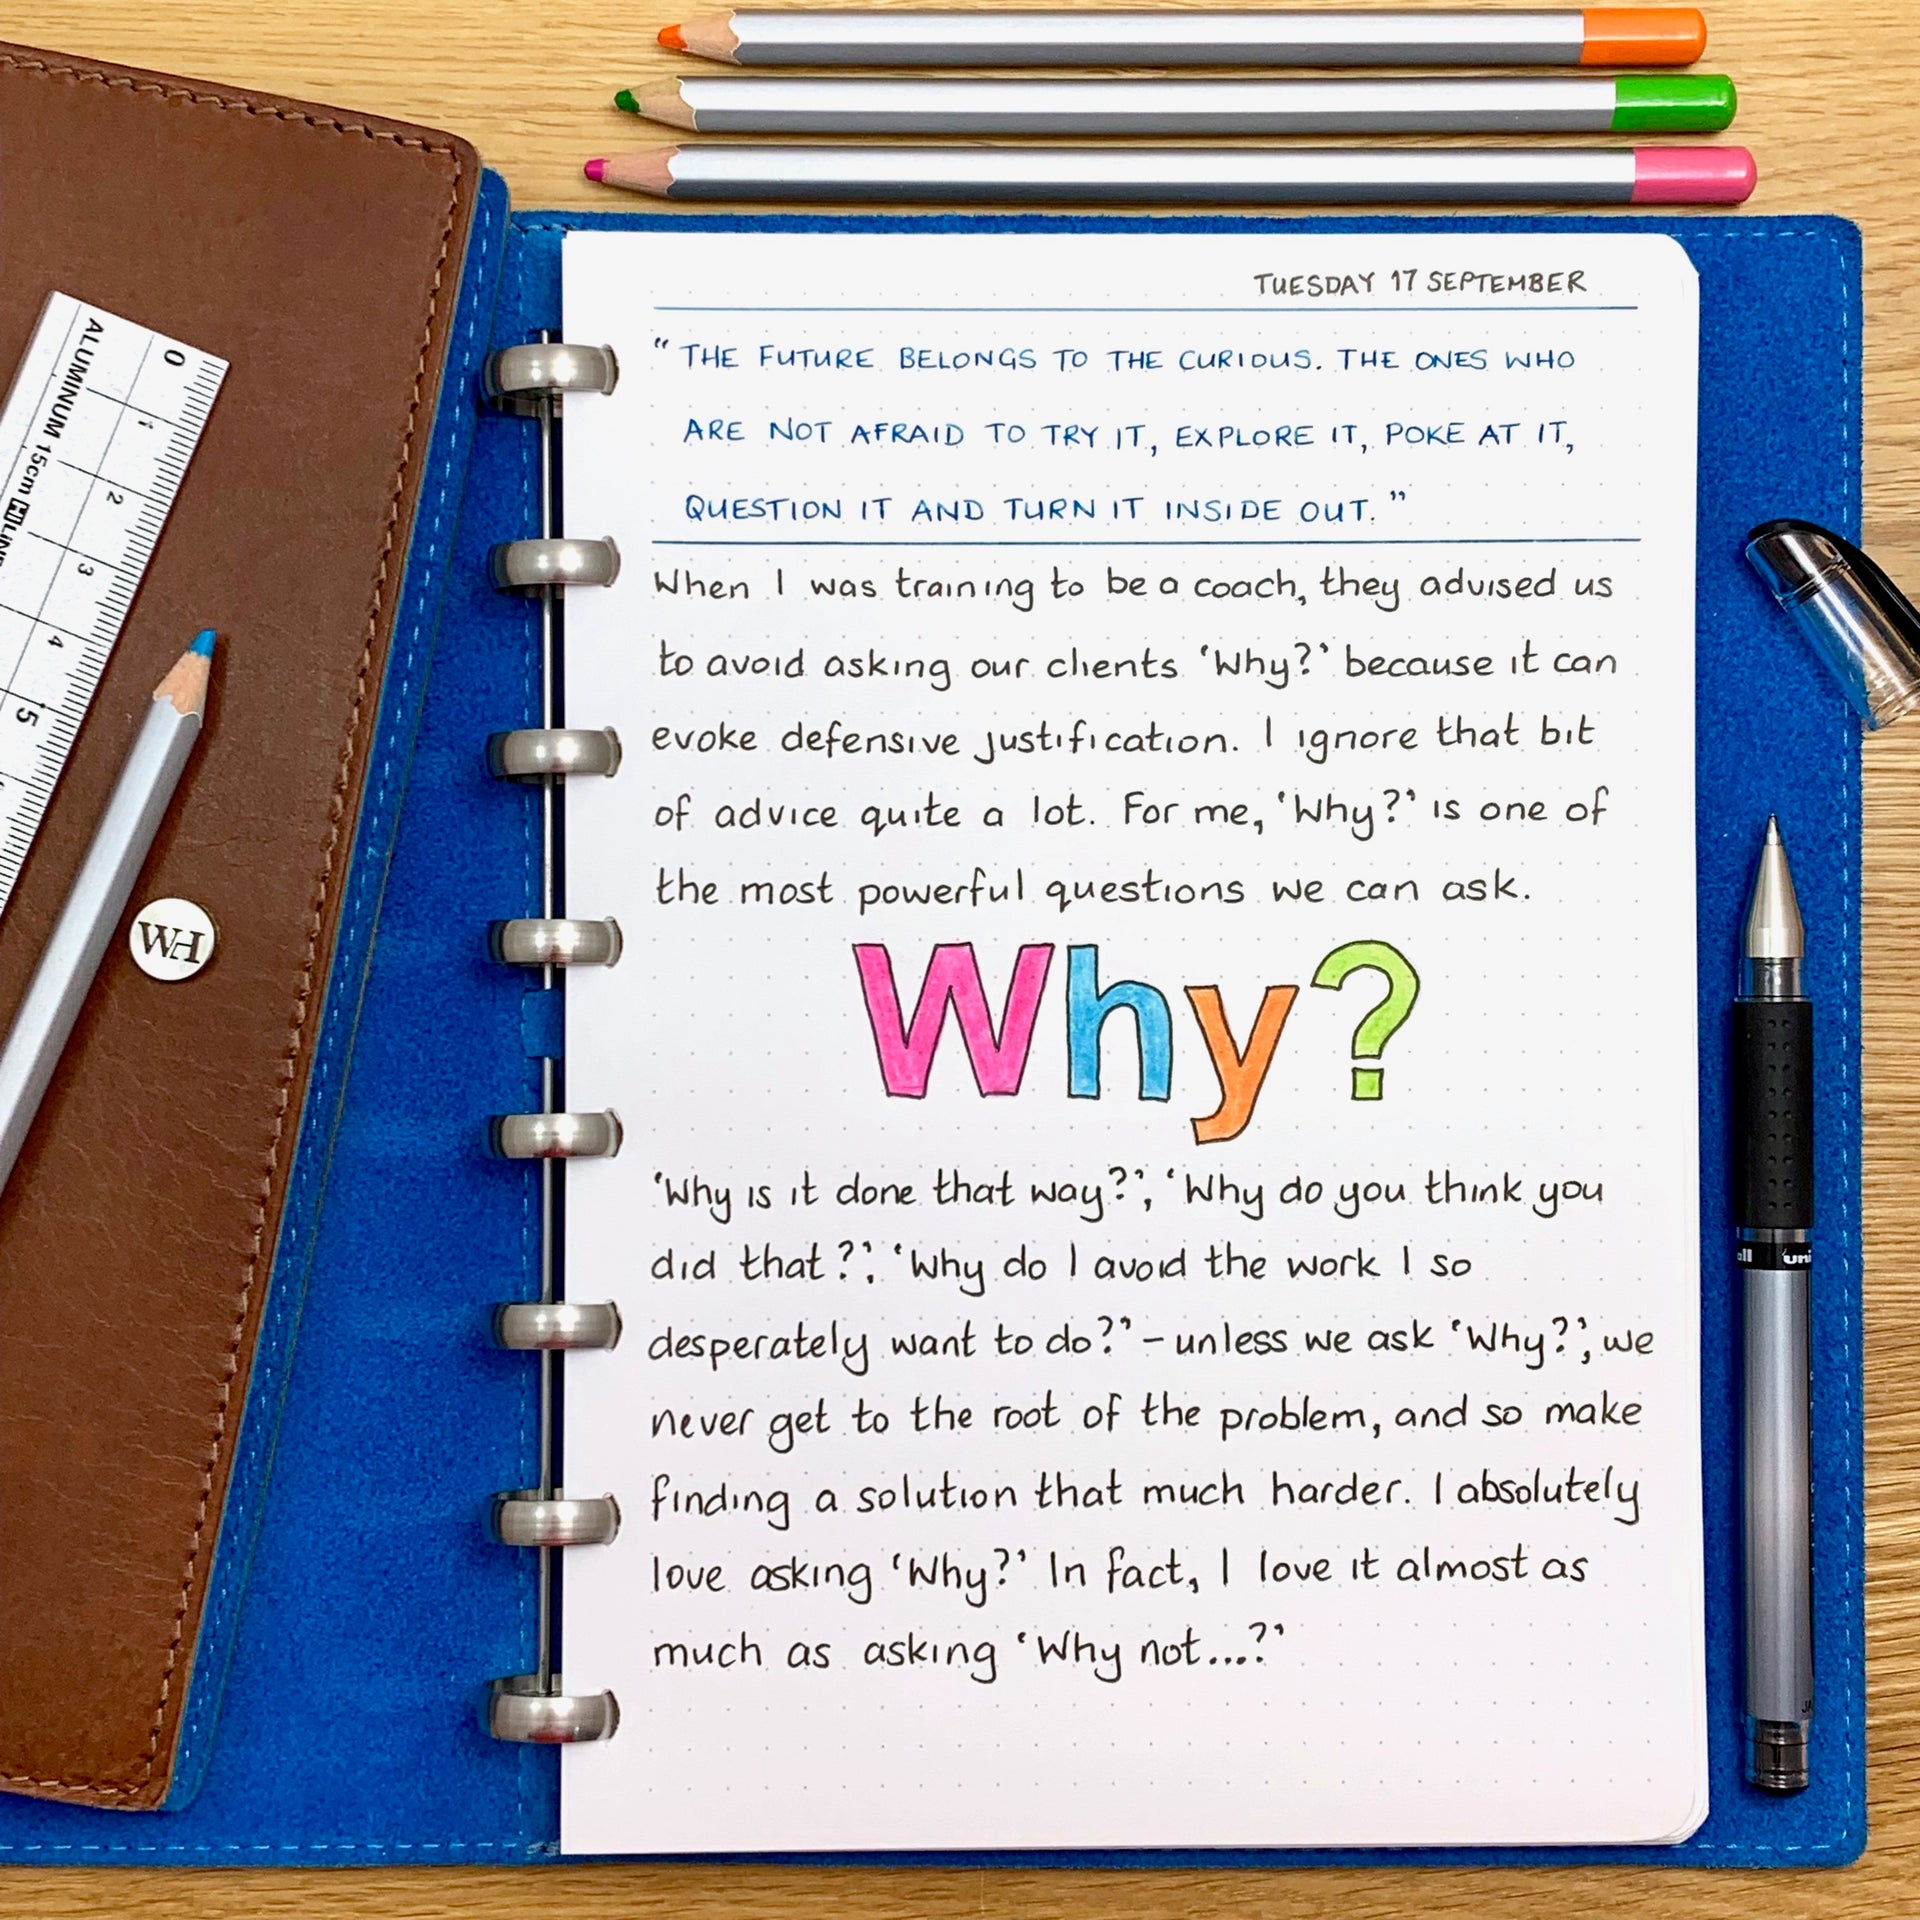 TUESDAY 17 SEPTEMBER
“ THE FUTURE BELONGS TO THE CURIOUS. THE ONES WHO
ARE NOT AFRAID TO TRY IT, EXPLORE IT, POKE AT IT,
QUESTION IT AND TURN IT INSIDE OUT. ”
When I was training to be a coach, they advised us
to avoid asking our clients ‘Why?’ because it can
evoke defensive justification. I ignore that bit
of advice quite a lot. For me, ‘Why?’ is one of
the most powerful questions we can ask.
Why?
‘Why is it done that way?’, ‘Why do you think you
did that?’, ‘Why do I avoid the work I so
desperately want to do?’ – unless we ask ‘Why?’, we
never get to the root of the problem, and so make
finding a solution that much harder. I absolutely
love asking ‘Why?’ In fact, I love it almost as
much as asking ‘Why not...?’
ALUMINUM 15cm
0
1
2
3
4
5
WH
uni